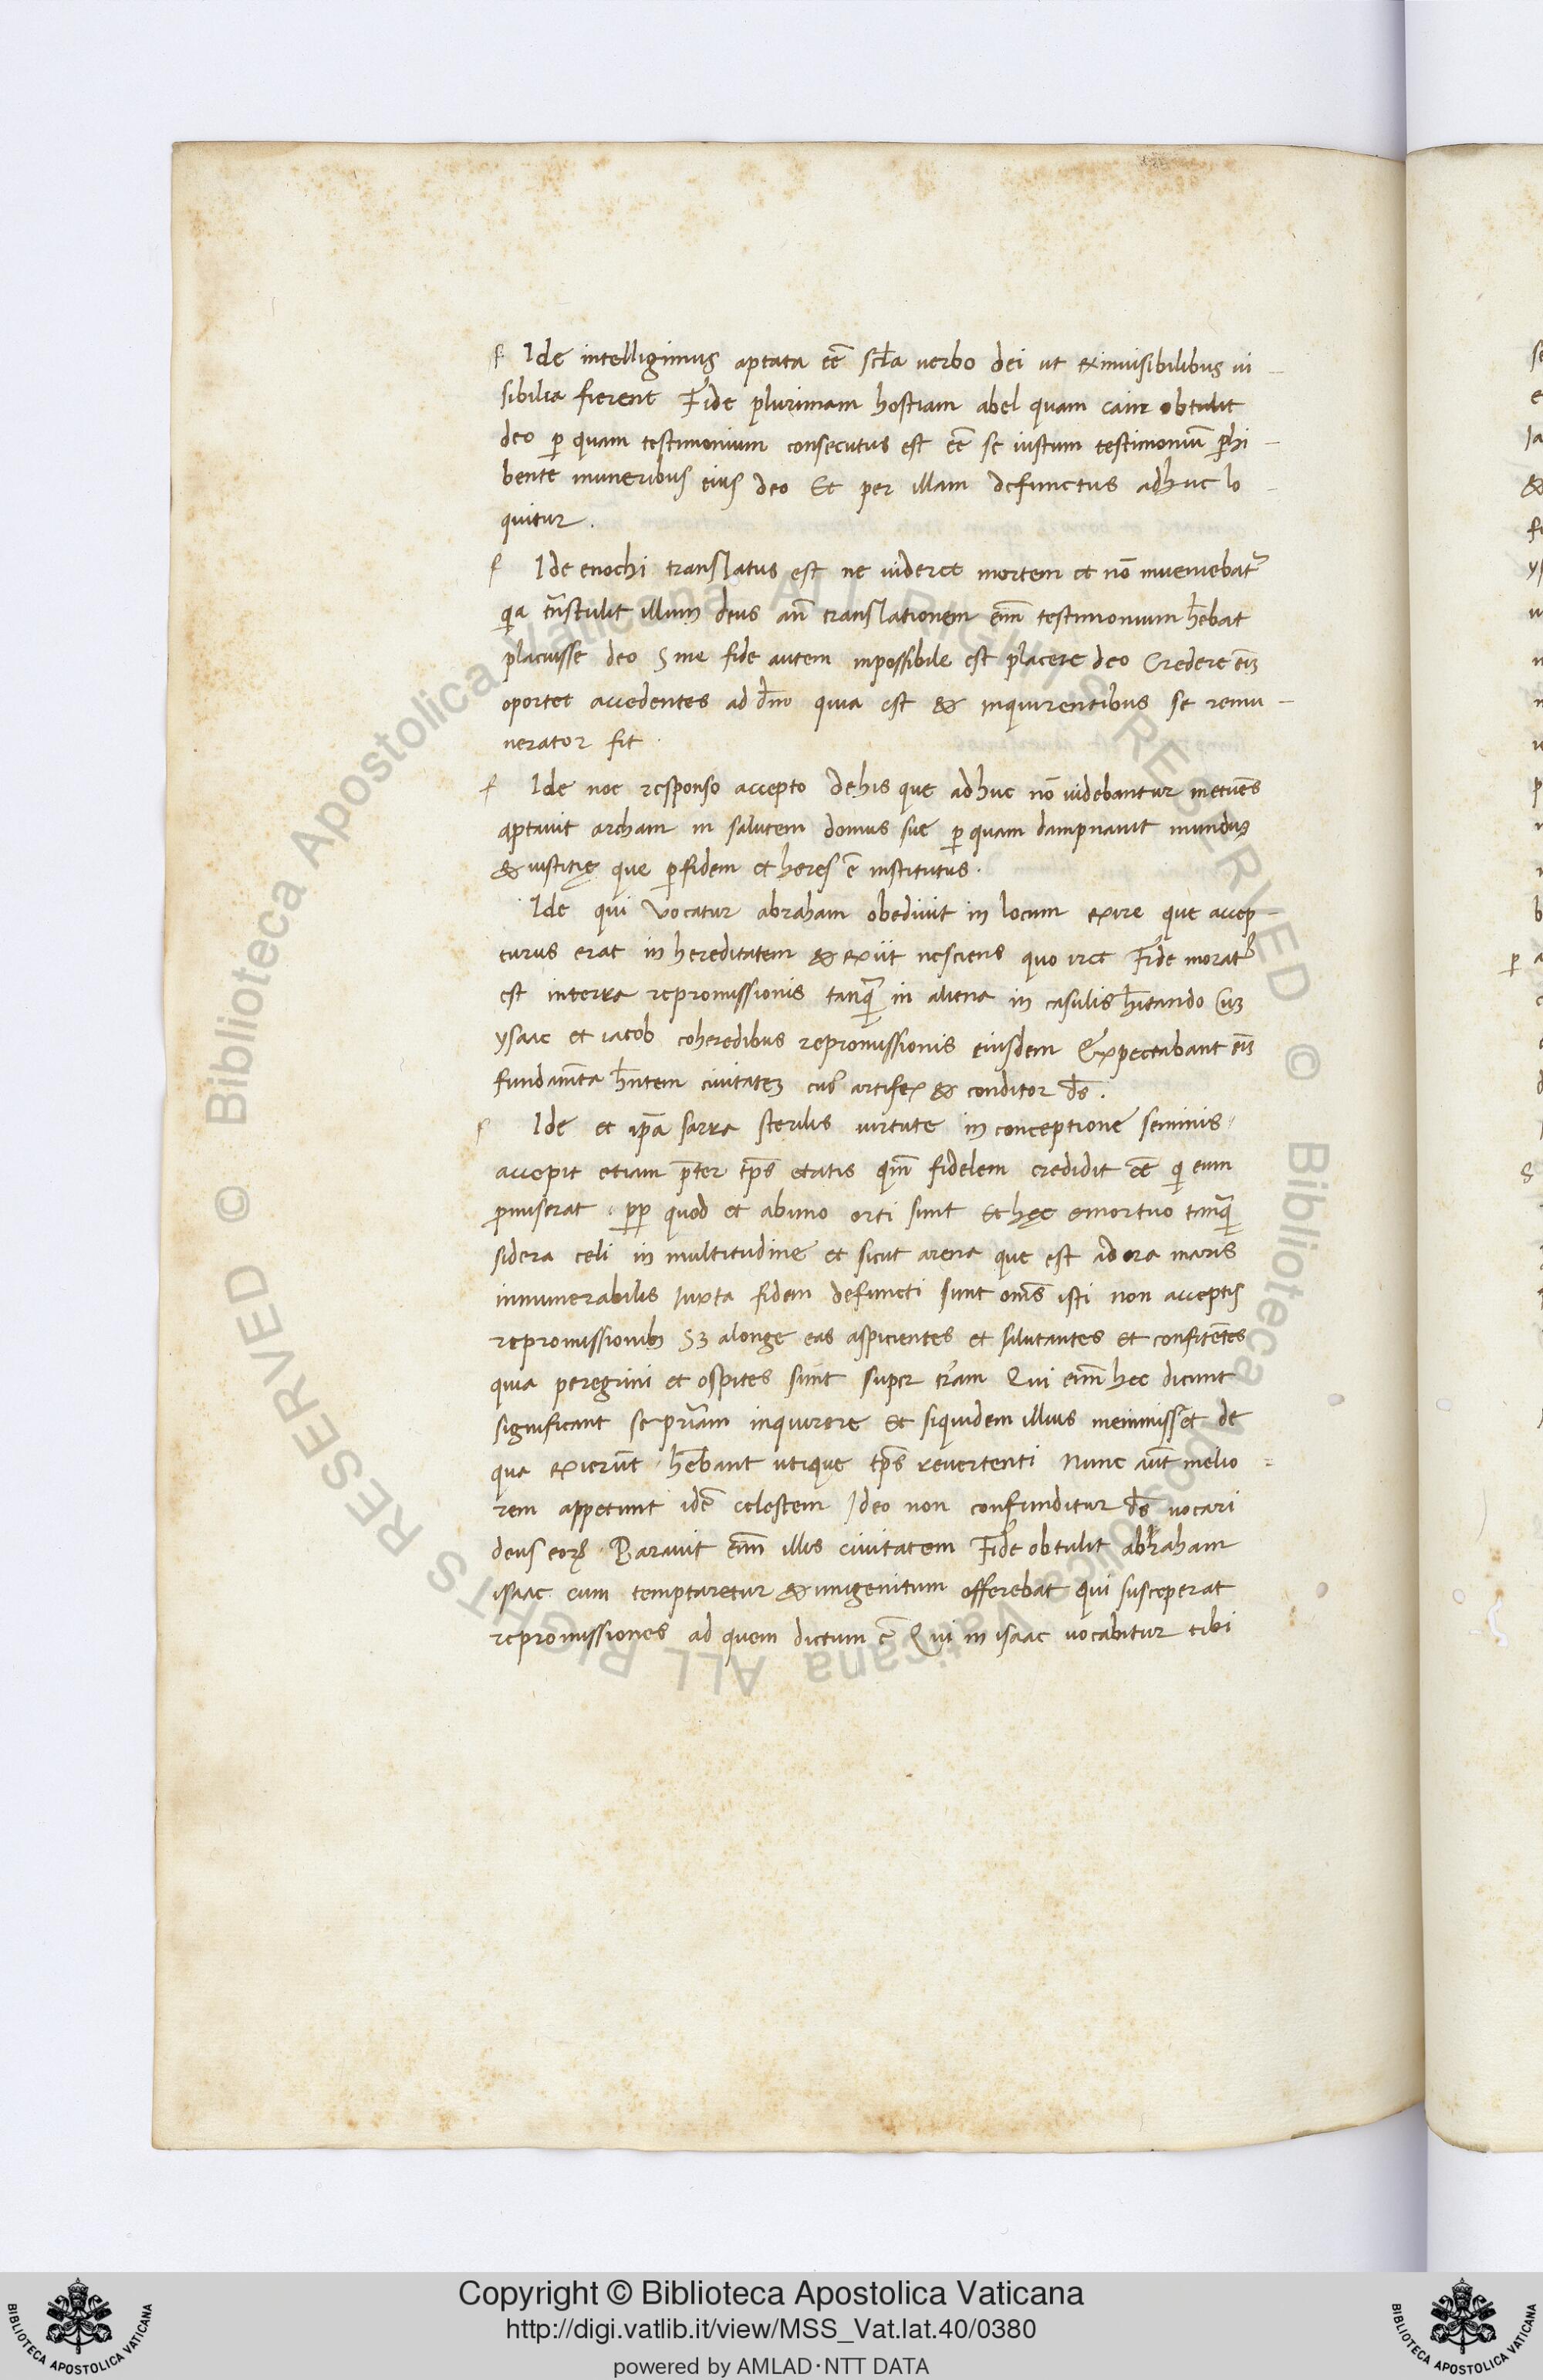 f Ide intelligimus aptata eē scl̄a uerbo dei ut exinuisibilibus ui -
sibilia fierent Fide plurimam hostiam abel quam cain obtulit
deo ꝑ quam testimonium consecutus est eē se iustum testimoniū ꝑhi -
bente muneribus eius deo Et per illam defunctus adhuc lo -
quitur .
f Ide enochi translatus est ne uideret mortem et nō inueniebat᷑
qͥa tn̄stulit illum deus an̄ translationem eni᷑ testimonium hēbat
placuisse deo Sine fide autem inpossibile est placere deo Credere eni᷑
oportet accedentes ad dm̄ quia est & inquirentibus se remu -
nerator fit .
f Ide noe responso accepto dehis que adhuc nō uidebantur metuēs
aptauit archam in salutem domus sue ꝑ quam dampnauit mundus
& iusticię que ꝑfidem et heres ē institutus .
Ide qui vocatur abraham obediuit in locum exire que accep -
turus erat in hereditatem & exiit nesciens quo iret Fide morat᷑
est interra repromissionis tanqͣ in aliena in casulis hītando Cuȝ
ysaac et iacob coheredibus repromissionis eiusdem Expectabant eni᷑
fundamēta hn̄tem ciuitateȝ cuiͥ artifex & conditor ds̄ .
f Ide et ip̄a sarra sterilis uirtute in conceptione seminis
accepit etiam p̄ter tp̄s etatis qm̄ fidelem credidit eē qͥ eum
ꝓmiserat . ꝓꝑ quod et abuno orti sunt Et hęc emortuo tanqͣ
sidera celi in multitudine et sicut arena que est ad ora maris
innumerabilis Iuxta fidem defuncti sunt om̄s isti non acceptis
repromissionibꝫ Sȝ alonge eas aspicientes et salutantes et confitētes
quia peregrini et ospites sunt super tr̄am Qui eni᷑ hec dicunt
significant se pr̄iam inquirere Et siquidem illius meminissēt de
qua exierūt . hēbant utique tp̄s reuertenti Nunc aūt melio =
rem appetunt idē celestem Ideo non confunditur ds̄ uocari
deus eoꝝ . Parauit eni᷑ illis ciuitatem Fide obtulit abraham
isaac cum temptaretur & unigenitum offerebat qui susceperat
repromissiones ad quem dictum ē Qui in isaac uocabitur tibi
Copyright © Biblioteca Apostolica Vaticana
http://digi.vatlib.it/view/MSS_Vat.lat.40/0380
powered by AMLAD·NTT DATA
BIBLIOTECA APOSTOLICA VATICANA
BIBLIOTECA APOSTOLICA VATICANA
© Biblioteca Apostolica Vaticana ALL RIGHTS RESERVED © Biblioteca Apostolica Vaticana ALL RIGHTS RESERVED